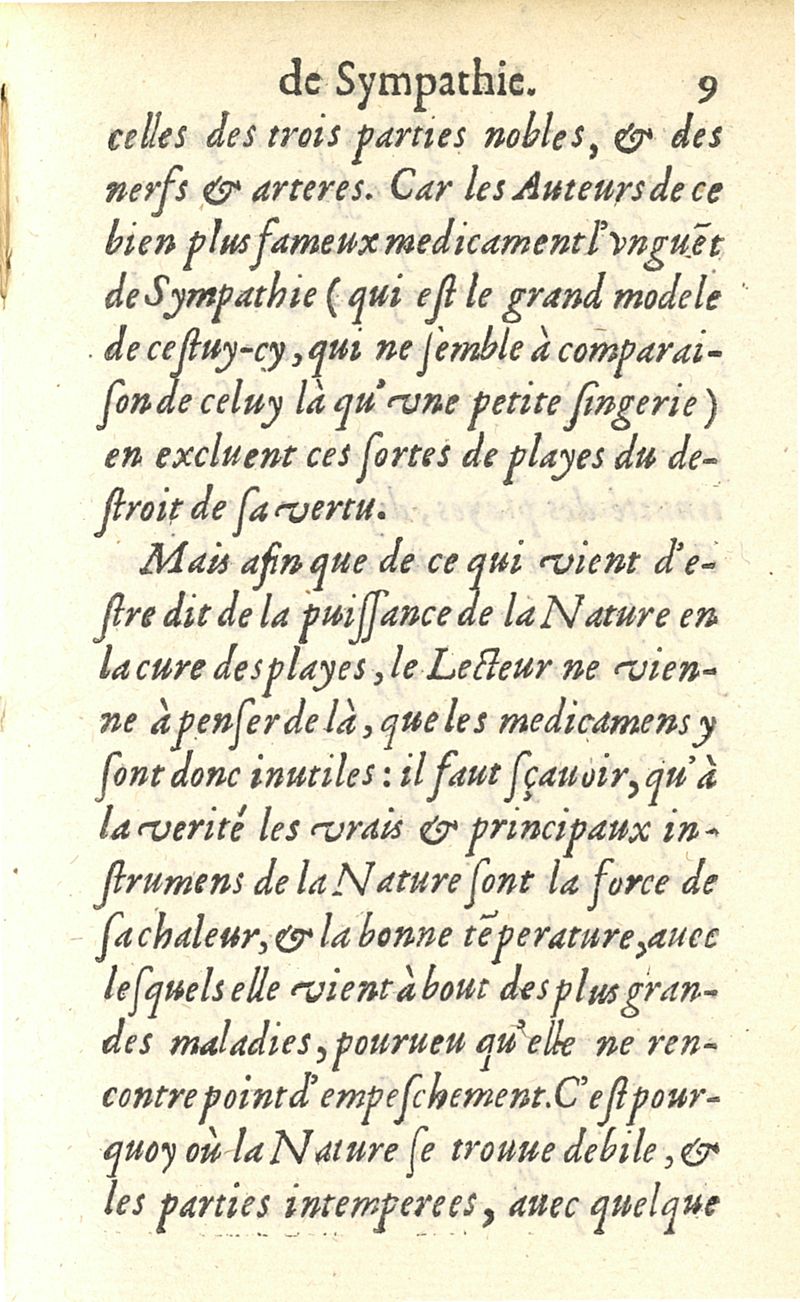 de Sympathie. 9
celles des trois parties nobles, & des
nerfs & arteres. Car les Auteurs de ce
bien plus fameux medicament l'vnguẽt
de Sympathie (qui eſt le grand modele
de ceſtuy-cy, qui ne ſemble à comparai-
ſon de celuy là qu'vne petite ſingerie)
en excluent ces ſortes de playes du de-
ſtroit de ſa vertu.
Mais afin que de ce qui vient d'e-
ſtre dit de la puiſſance de la Nature en
la cure des playes, le Lecteur ne vien-
ne à penſer de là, que les medicamens y
ſont donc inutiles : il faut ſçauoir, qu'à
la verité les vrais & principaux in-
ſtrumens de la Nature ſont la force de
ſa chaleur, & la bonne tẽperature, auec
leſquels elle vient à bout des plus gran-
des maladies, pourueu qu'elle ne ren-
contre point d'empeſchement. C'eſt pour-
quoy où la Nature ſe trouue debile, &
les parties intemperees, auec quelque